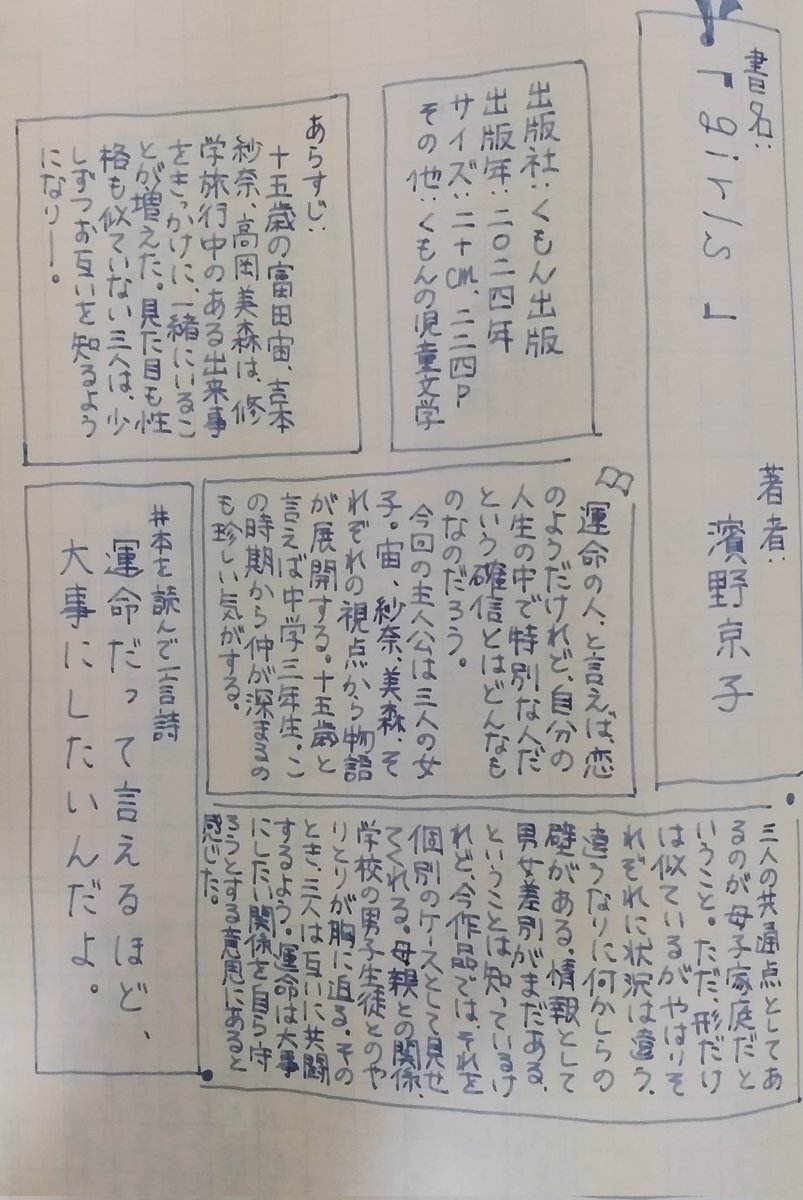 書名:
『girls』
著者:
濱野京子
出版社:くもん出版
出版年:二〇二四年
サイズ:二十cm、二二四P
その他:くもんの児童文学
あらすじ:
十五歳の富田宙、吉本
紗奈、高岡美森は、修
学旅行中のある出来事
をきっかけに、一緒にいるこ
とが増えた。見た目も性
格も似ていない三人は、少
しずつお互いを知るよう
になりー。
運命の人、と言えば、恋
のようだけれど、自分の
人生の中で特別な人だ
という確信とはどんなも
のなのだろう。
今回の主人公は三人の女
子。宙、紗奈、美森、そ
れぞれの視点から物語
が展開する。十五歳と
言えば中学三年生。こ
の時期から仲が深まるの
も珍しい気がする。
三人の共通点としてあ
るのが母子家庭だと
いうこと。ただ、形だけ
は似ているがやはりそ
れぞれに状況は違う。
違うなりに何かしらの
壁がある。情報として
男女差別がまだある、
ということは知っているけ
れど、今作品では、それを
個別のケースとして見せ
てくれる。母親との関係、
学校の男子生徒とのや
りとりが胸に迫る。その
とき、三人は互いに共闘
するよう。運命は大事
にしたい関係を自ら守
ろうとする意思にあると
感じた。
#本を読んで一言詩
運命だって言えるほど、
大事にしたいんだよ。